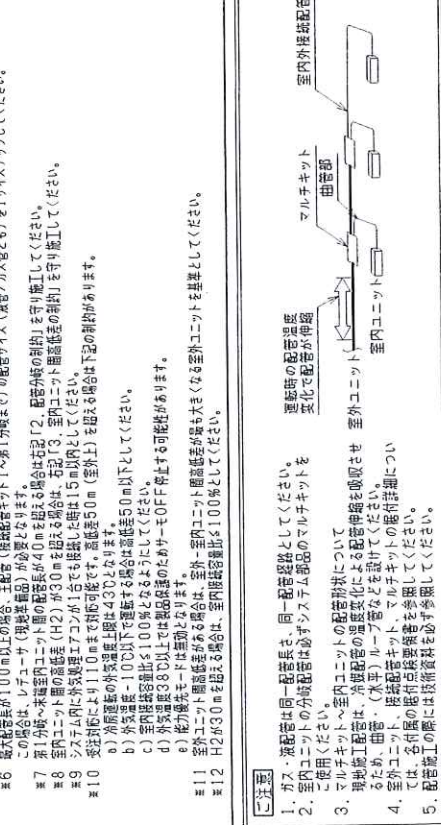 ※6 最大配管長が100m以上の場合、主配管(接続配管キット1～第1分岐まで)の配管サイズ(液管・ガス管とも)を1サイズアップしてください。
この場合は、レデューサ(現地準備品)が必要となります。
※7 第1分岐～末端室内ユニット間の配管長が40mを超える場合は右記「2、配管分岐の制約」を守り施工してください。
※8 室内ユニット間の高低差(H2)が30mを超える場合は、右記「3、室内ユニット間高低差の制約」を守り施工してください。
※9 システム内に外気処理エアコンが1台でも接続した時は15m以内としてください。
※10 受注対応により110mまで対応可能です。高低差50m(室外上)を超える場合は下記の制約があります。
a)冷房運転の外気温度上限は43℃となります。
b)外気温度-10℃以下で運転する場合は高低差50m以下としてください。
c)室内接続容量比≦100%となるようにしてください。
d)外気温度38℃以上では製品保護のためサーモOFF停止する可能性があります。
e)能力優先モードは無効となります。
※11 室外ユニット間高低差がある場合は、室外-室内ユニット間高低差が最も大きくなる室外ユニットを基準としてください。
※12 H2が30mを超える場合は、室内接続容量比≦100%としてください。
ご注意
1. ガス・液配管は同一配管長さ、同一配管経路としてください。
2. 室内ユニットの分岐配管は必ずシステム部品のマルチキットを
ご使用ください。
3. マルチキット～室内ユニットの配管形状について
現地施工配管は、冷媒配管の温度変化による配管伸縮を吸収させ
るため、曲管、(水平)ループ管などを設けてください。
4. 室外ユニット、接続配管キット、マルチキットの据付詳細につい
ては、各付属の据付点検要領書を参照してください。
5. 配管施工の際には技術資料を必ず参照してください。
運転時の配管温度
変化で配管が伸縮
室外ユニット
室内ユニット
マルチキット
曲管部
室内外接続配管